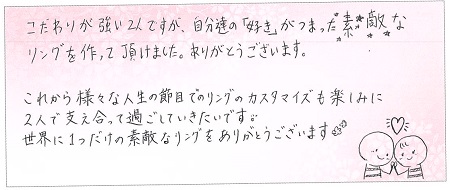 こだわりが強い2人ですが、自分達の「好き」がつまった素敵な
リングを作って頂けました。ありがとうございます。
これから様々な人生の節目でのリングのカスタマイズも楽しみに
2人で支え合って過ごしていきたいです。
世界に1つだけの素敵なリングをありがとうございます